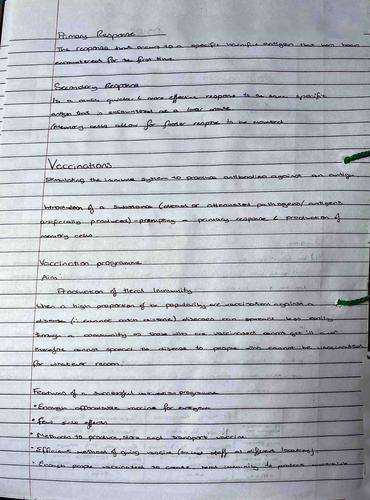 Primary Response
The response that occurs to a specific antigen that has been
encountered for the first time
Secondary Response
Is a much quicker & more effective response to the same specific
antigen that is encountered at a later
memory cells allow for faster response to be mounted
Vaccinations
Stimulating the immune system to produce antibodies against an antigen
Introduction of a substance (dead or attenuated pathogens/antigens
artificially produced) - prompting a primary response & production of
memory cells
Vaccination programme
Aim:
Production of Herd Immunity
When a high proportion of the are vaccinated against a
disease (∴ cannot catch disease) diseases can spread less easily
through a community as those who are vaccinated cannot get ill
therefore cannot spread the disease to people who cannot be vaccinated
for whatever reason.
Features of a successful programme
• Enough affordable vaccine for everyone
• Few side effects
• Methods to produce, store and transport vaccine
• Efficient method of giving vaccine staff at different locations)
• Enough people vaccinated to create herd immunity to protect